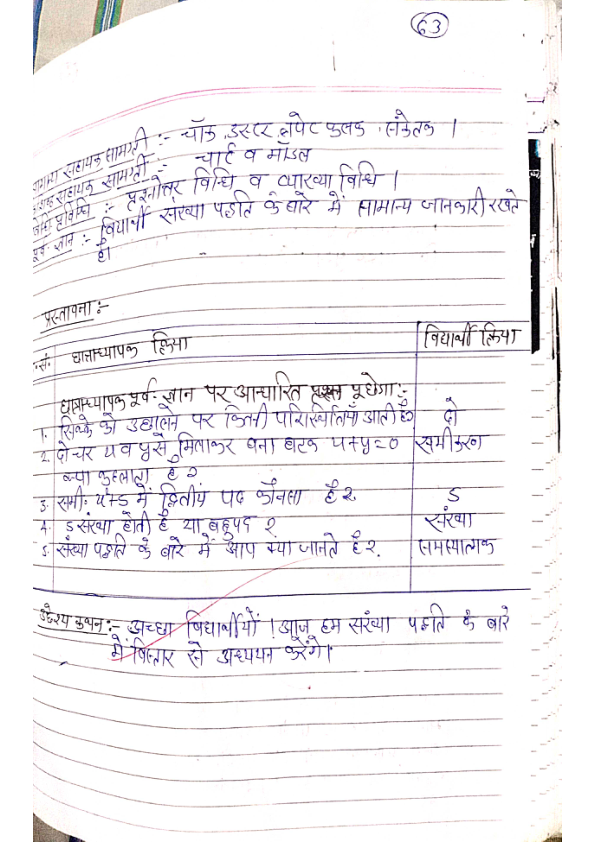 63
सामान्य सहायक सामग्री :- चॉक, डस्टर, लपेट फलक, संकेतक ।
सहायक सामग्री :- चार्ट व मॉडल
प्रविधि :- प्रश्नोत्तर विधि व व्याख्या विधि ।
पूर्व ज्ञान :- विद्यार्थी संख्या पद्धति के बारे में सामान्य जानकारी रखते
है।
प्रस्तावना :-
सं. छात्राध्यापक क्रिया विद्यार्थी क्रिया
छात्राध्यापक पूर्व ज्ञान पर आधारित प्रश्न पूछेगा :-
1. सिक्के को उछालने पर कितनी परिस्थितियाँ आती है? दो
2. दो चर x व y से मिलाकर बना घटक x+y=0 समीकरण
क्या कहलाता है ?
3. समी. x+5 में द्वितीय पद कौनसा है ? 5
4. 5 संख्या होती है या बहुपद ? संख्या
5. संख्या पद्धति के बारे में आप क्या जानते है ? समस्यात्मक
उद्देश्य कथन :- अच्छा विद्यार्थीयों ! आज हम संख्या पद्धति के बारे
में विस्तार से अध्ययन करेंगे।